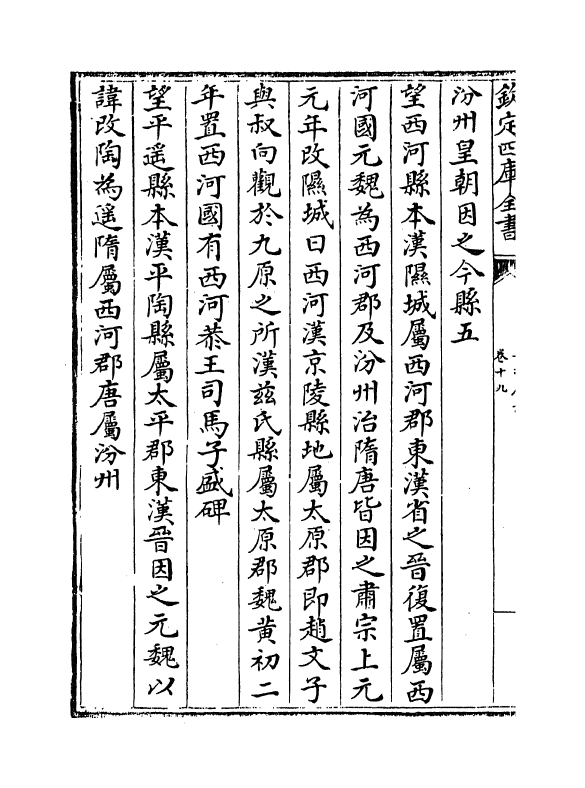 欽定四庫全書
卷十九
汾州皇朝因之今縣五
望西河縣本漢隰城屬西河郡東漢省之晉復置屬西
河國元魏為西河郡及汾州治隋唐皆因之肅宗上元
元年改隰城曰西河漢京陵縣地屬太原郡即趙文子
與叔向觀於九原之所漢兹氏縣屬太原郡魏黄初二
年置西河國有西河恭王司馬子盛碑
望平遥縣本漢平陶縣屬太平郡東漢晉因之元魏以
諱改陶為遥隋屬西河郡唐屬汾州